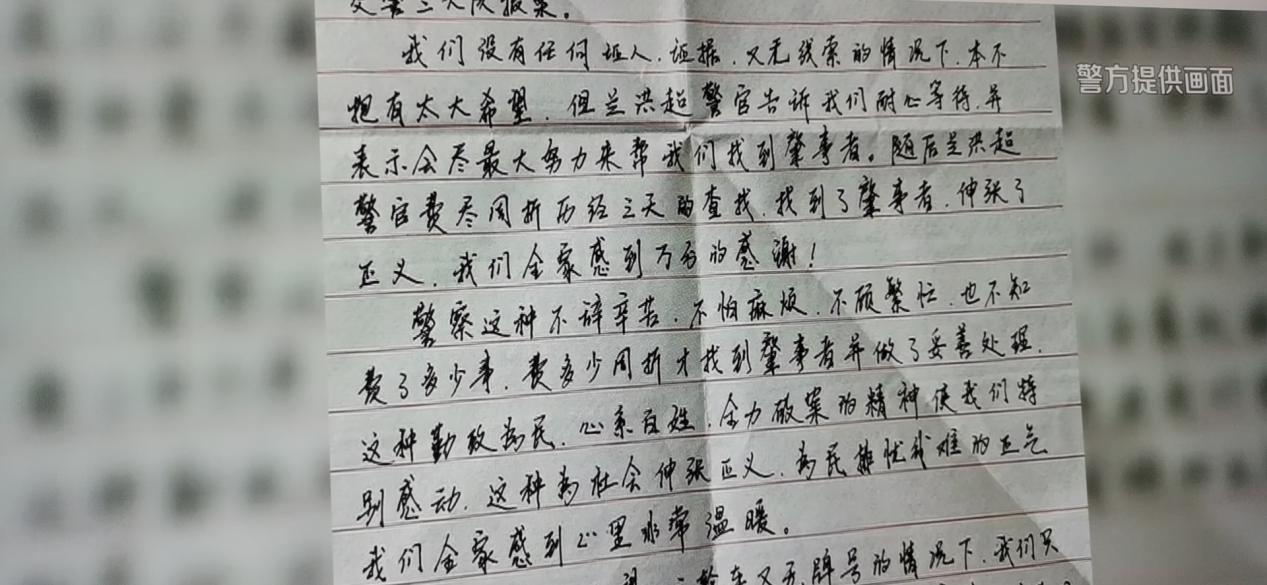 交警三大队报案。
我们没有任何证人、证据,又无线索的情况下,本不
抱有太大希望,但兰洪超警官告诉我们耐心等待,并
表示会尽最大努力来帮我们找到肇事者。随后兰洪超
警官费尽周折历经三天的查找,找到了肇事者,伸张了
正义,我们全家感到万分的感谢!
警察这种不辞辛苦,不怕麻烦,不顾繁忙,也不知
费了多少事,费多少周折才找到肇事者并做了妥善处理,
这种勤政为民,心系百姓,全力破案的精神使我们特
别感动,这种为社会伸张正义,为民排忧我难的正气
我们全家感到心里非常温暖。
轮车又无牌号的情况下,我们只
警方提供画面